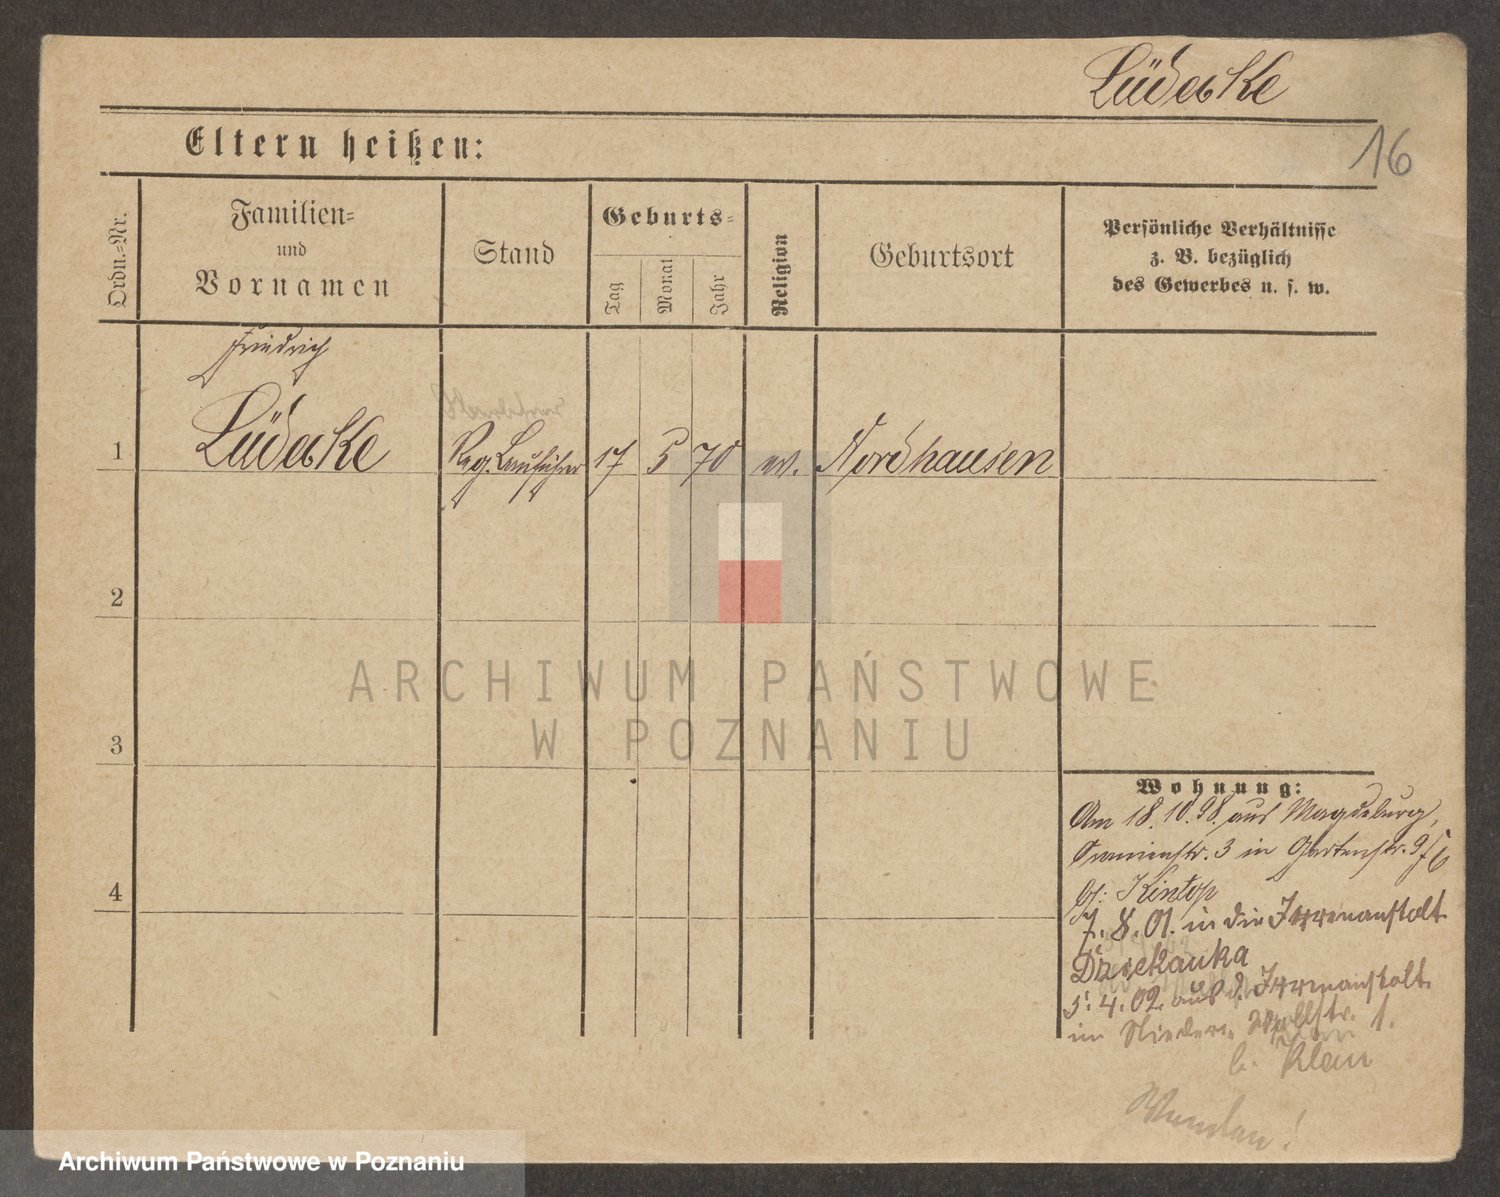 Lüdecke
16
Eltern heißen:
Ordn.-Nr.
Familien-
und
Vornamen
Stand
Geburts-
Tag
Monat
Jahr
Religion
Geburtsort
Persönliche Verhältnisse
z. B. bezüglich
des Gewerbes u. s. w.
Friedrich
1 Lüdecke Reg. Bauführer 17 5 70 ev. Nordhausen
2
ARCHIWUM PAŃSTWOWE
W POZNANIU
3
4
Wohnung:
Am 18.10.98. aus Magdeburg,
3 in Gartenstr.
bei Kintop
7. 8. 01. in die Irrenanstalt
Dziekanka
5. 4. 02. aus d. Irrenanstalt
in Nieder. Wallstr. 1.
b. Klau
Archiwum Państwowe w Poznaniu